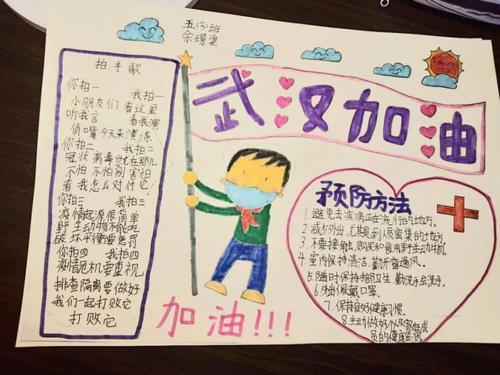 五(3)班
余璟雯
武汉加油
拍手歌
你拍一 我拍一
小朋友们看这里
听我言 看我演
俏嘴今天来演练
你拍二 我拍二
冠状病毒就在那儿
不怕不怕别害怕
看我怎么对付它
你拍三 我拍三
疫情起源很简单
野生动物不能吃
破坏平衡要惩罚
你拍四 我拍四
疫情危机要重视
排查隔离要做好
我们一起打败它
打败它
加油!!!
预防方法
1.避免去疾病正在流行的地方。
2.减少外出,尤其是到人员密集的地方
3.不要接触、购买和食用野生动物
4.室内保持清洁,勤开窗通风。
5.随时保持手卫生,勤洗手
6.外出佩戴口罩。
7.保持良好健康习惯。
8.主动做好个人以及家庭成
员的健康监测